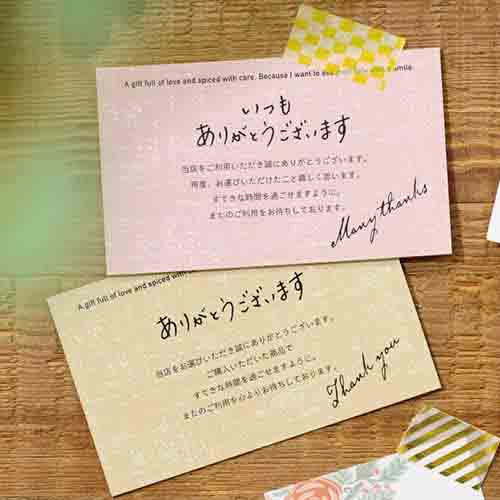 A gift full of love and spiced with care. Because I want to see
smile.
いつも
ありがとうございます
当店をご利用いただき誠にありがとうございます。
再度、お選びいただけたこと嬉しく思います。
すてきな時間を過ごせますように。
またのご利用をお待ちしております。
Many thanks
A gift full of love and spiced with
ありがとうございます
当店をお選びいただき誠にありがとうございます。
ご購入いただいた商品で
すてきな時間を過ごせますように。
またのご利用を心よりお待ちしております。
Thank you